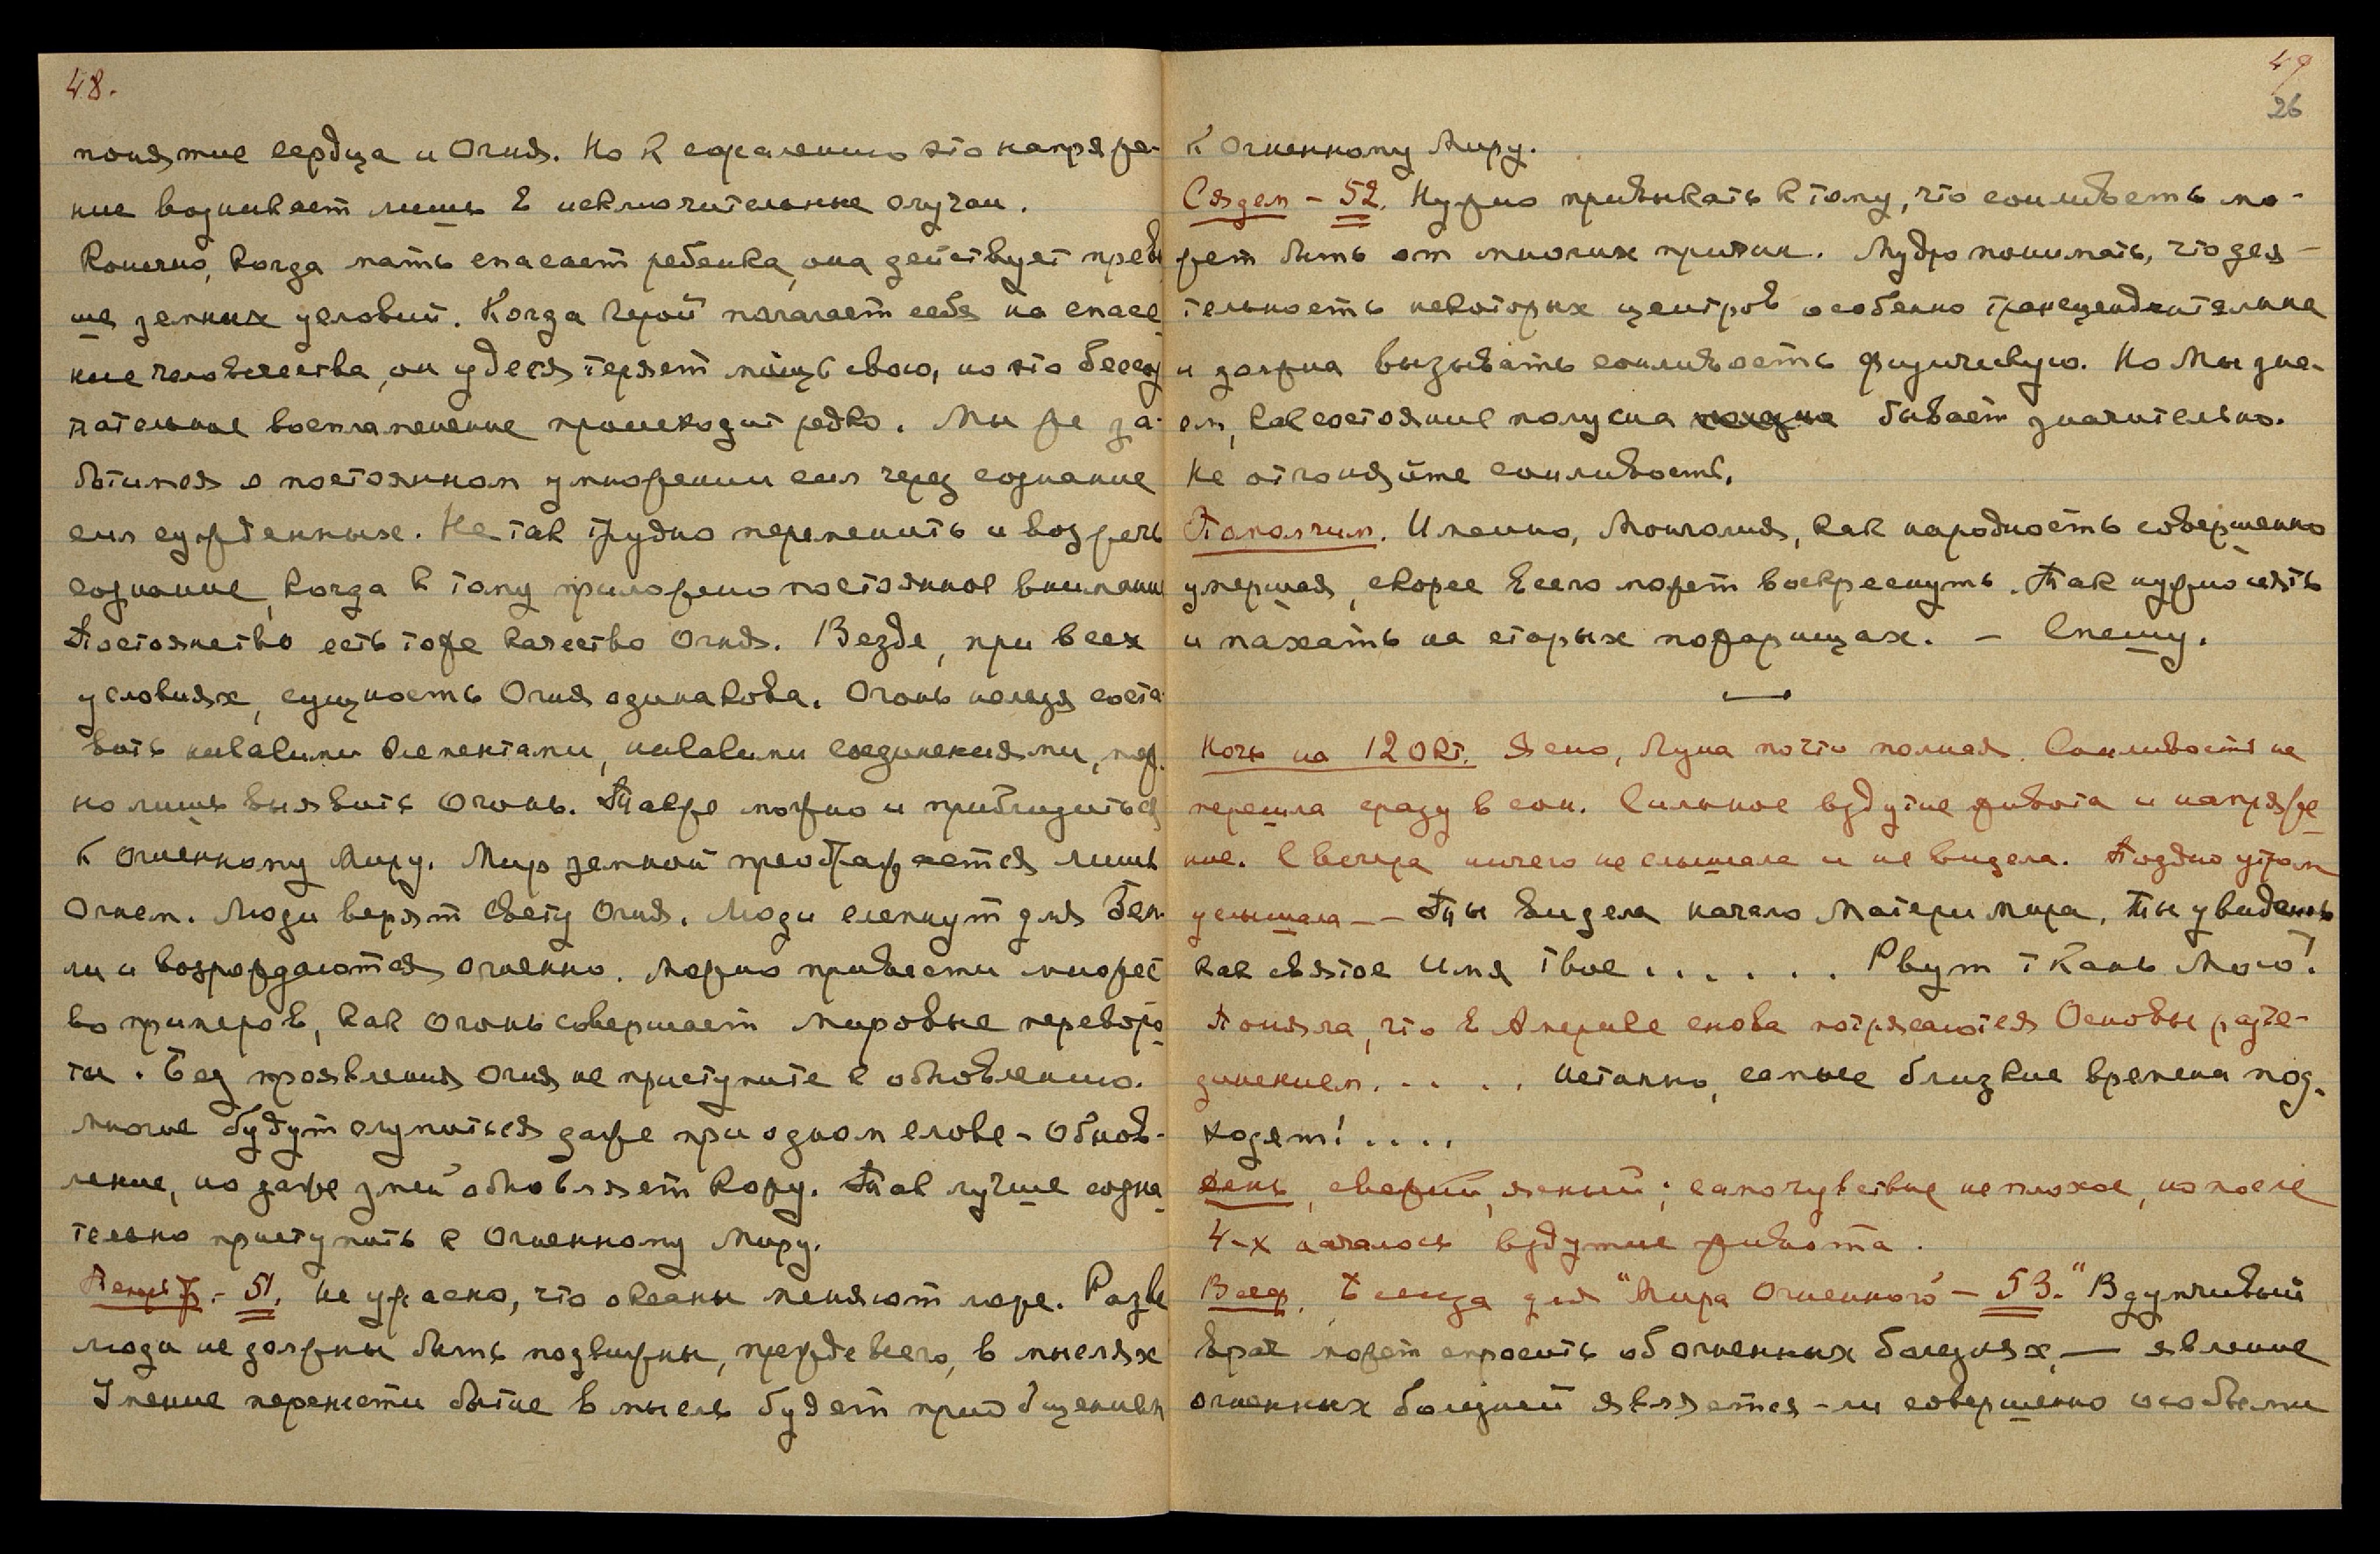 48.
понятие сердца и Огня. Но к сожалению это напряже-
ние возникает лишь в исключительные случаи.
Конечно, когда мать спасает ребенка, она действует превы
ше земных условий. Когда Герой полагает себя на спасе
ние человечества, он удесятеряет мощь свою, но это бессозн
тательное воспламенение происходит редко. Мы же за-
ботимся о постоянном умножении сил через сознание
сил сужденных. Не так трудно переменить и возжечь
сознание, когда к тому приложено постоянное внимание
Постоянство есть тоже качество Огня. Везде, при всех
условиях, сущность Огня одинакова. Огонь нельзя соста
вить никакими элементами, никакими соединениями, мож.
но лишь выявить Огонь. Также можно и приблизиться
к Огненному Миру. Мир земной преображается лишь
Огнем. Люди верят Свету Огня. Люди слепнут для Зем
ли и возрождаются огненно. Можно привести множест
во примеров, как Огонь совершает мировые переворо
ты. Без проявления Огня не приступите к обновлению.
Многие будут глумиться даже при одном слове - Обнов-
ление, но даже змей обновляет кору. Так лучше созна
тельно приступить к Огненному Миру.
- 51. Не ужасно, что океаны меняют ложе. Разве
люди не должны быть подвижны, прежде всего, в мыслях
Умение перенести бытие в мысль будет приобщением
49
26
к Огненному Миру.
Сядем - 52. Нужно привыкать к тому, что сонливость мо-
жет быть от многих причин. Мудро понимать, что дея-
тельность некоторых центров особенно трансцендентальна
и должна вызывать сонливость физическую. Но Мы зна-
ем, как состояние полусна бывает значительно.
Не отгоняйте сонливость.
Помолчим. Именно, Монголия, как народность совершенно
умершая, скорее всего может воскреснуть. Так нужно сеять
и пахать на старых пожарищах. - Спешу.
Ночь на 12 Окт. Ясно, Луна почти полная. Сонливость не
перешла сразу в сон. Сильное вздутие живота и напряже
ние. С вечера ничего не слышала и не видела. Поздно утром
услышала - - Ты видела начало Матери Мира, ты увидишь
как святое Имя Твое . . . . . . Рвут ткань Мою!
Поняла, что в Америке снова потрясаются Основы разъе-
динением. . . . . . Истинно, самые близкие времена под-
ходят! . . . .
День, свежий, ясный; самочувствие не плохое, но после
4-х началось вздутие живота.
Всеф. Беседа для "Мира Огненного - 53." Вдумчивый
врач может спросить об огненных болезнях, — явление
огненных болезней является-ли совершенно особыми